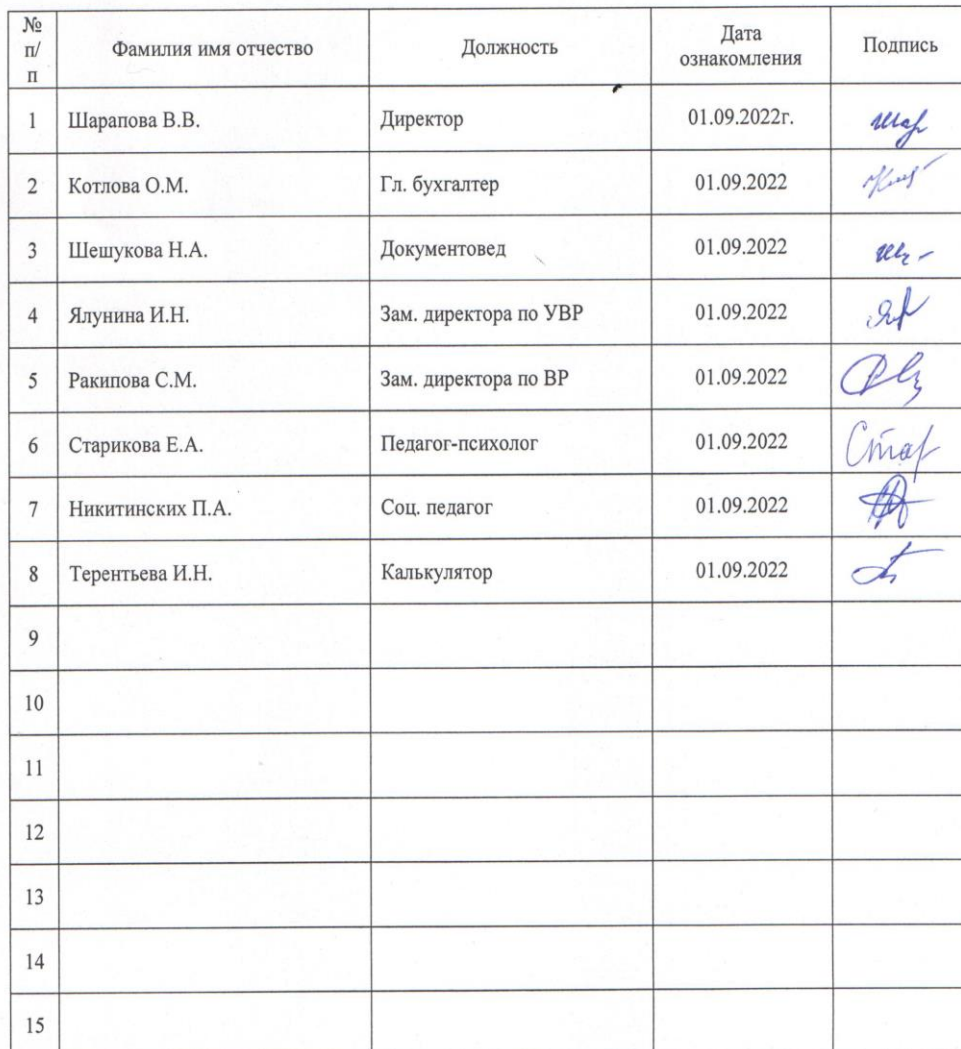 № п/п Фамилия имя отчество Должность Дата ознакомления Подпись
1 Шарапова В.В. Директор 01.09.2022г. Шар
2 Котлова О.М. Гл. бухгалтер 01.09.2022
3 Шешукова Н.А. Документовед 01.09.2022
4 Ялунина И.Н. Зам. директора по УВР 01.09.2022
5 Ракипова С.М. Зам. директора по ВР 01.09.2022
6 Старикова Е.А. Педагог-психолог 01.09.2022 Стар
7 Никитинских П.А. Соц. педагог 01.09.2022
8 Терентьева И.Н. Калькулятор 01.09.2022
9
10
11
12
13
14
15